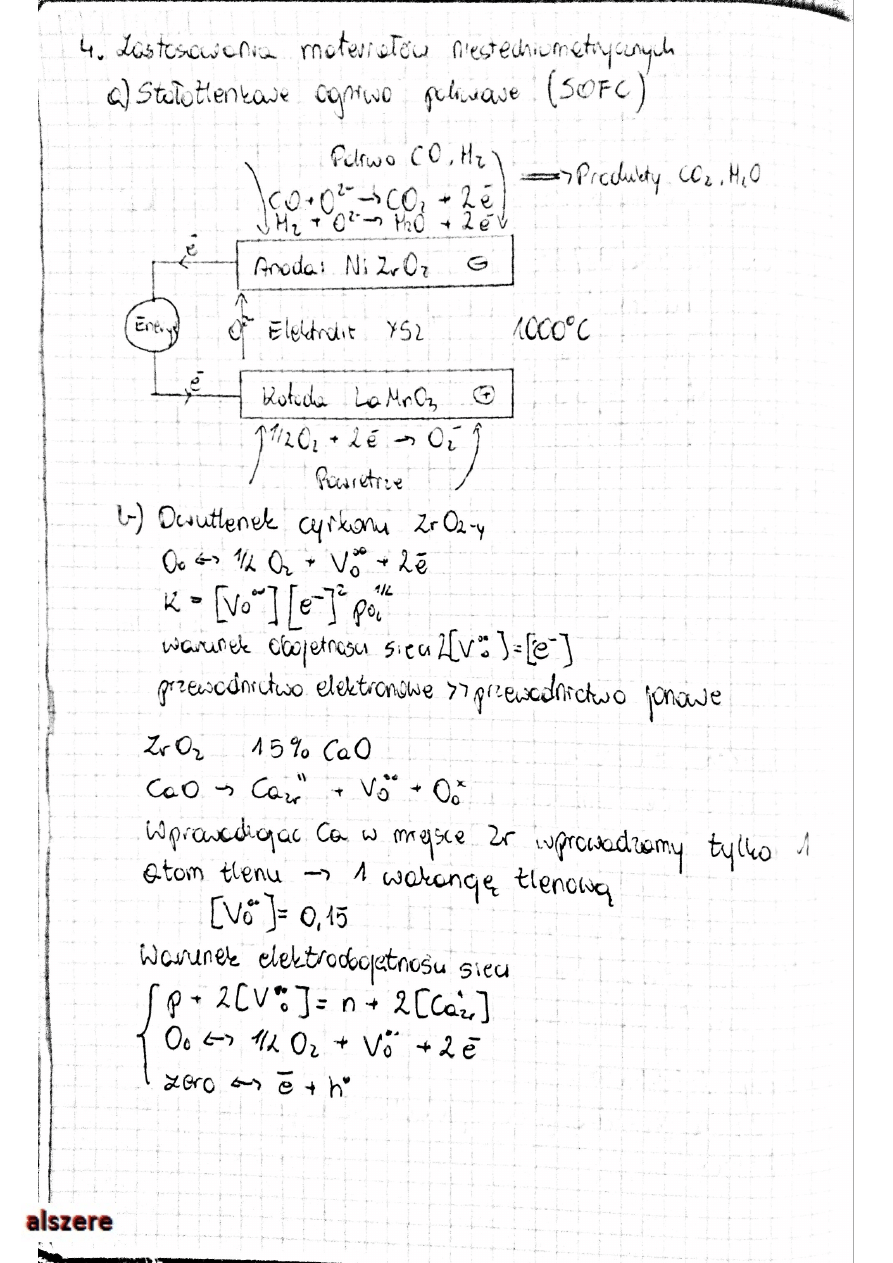 4. Zastosowania materiałów niestechiometrycznych
a) Stałotlenkowe ogniwo paliwowe (SOFC)
Paliwo CO, H₂
⟹ Produkty CO₂, H₂O
CO + O²⁻ → CO₂ + 2ē
H₂ + O²⁻ → H₂O + 2ē
ē
Anoda: Ni ZrO₂ ⊖
Energ
O²⁻ Elektrolit YSZ 1000°C
ē
Katoda LaMnO₃ ⊕
1/2 O₂ + 2ē → O₂⁻
Powietrze
b) Dwutlenek cyrkonu ZrO₂₋y
O₀ ↔ 1/2 O₂ + V₀°° + 2ē
K = [V₀°°] [e⁻]² pO₂^1/2
warunek obojętności sieci 2[V₀°°] = [e⁻]
przewodnictwo elektronowe >> przewodnictwo jonowe
ZrO₂ 15% CaO
CaO → Ca_Zr'' + V₀°° + O₀ˣ
Wprowadzając Ca w miejsce Zr wprowadzamy tylko 1
atom tlenu → 1 wakancję tlenową
[V₀°°] = 0,15
Warunek elektroobojętności sieci
p + 2[V₀°°] = n + 2[Ca_Zr'']
O₀ ↔ 1/2 O₂ + V₀°° + 2ē
zero ↔ ē + h°
alszere